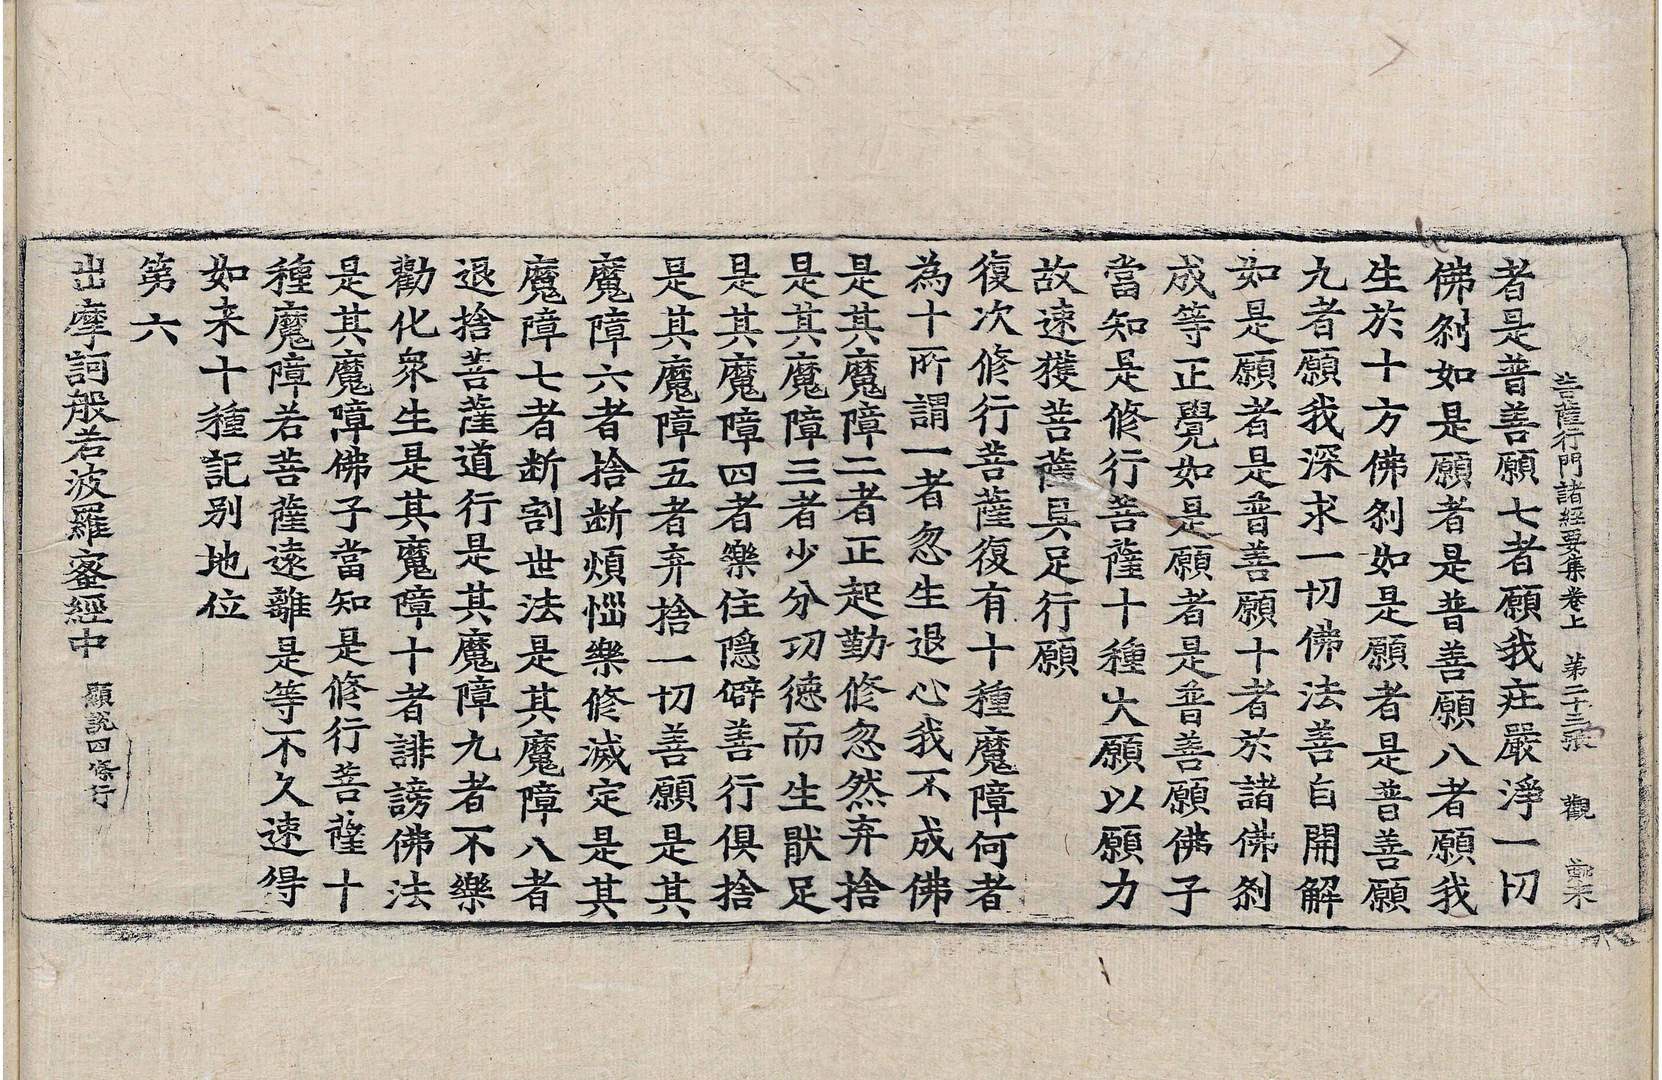 菩薩行門諸經要集卷上 第二十三張 觀
者是普善願七者願我庄嚴淨一切
佛刹如是願者是普善願八者願我
生於十方佛刹如是願者是普善願
九者願我深求一切佛法善自開解
如是願者是普善願十者於諸佛刹
成等正覺如是願者是普善願佛子
當知是修行菩薩十種大願以願力
故速獲菩薩具足行願
復次修行菩薩復有十種魔障何者
為十所謂一者忽生退心我不成佛
是其魔障二者正起勤修忽然弃捨
是其魔障三者少分功德而生猒足
是其魔障四者樂住隱僻善行俱捨
是其魔障五者弃捨一切善願是其
魔障六者捨断煩惱樂修滅定是其
魔障七者断割世法是其魔障八者
退捨菩薩道行是其魔障九者不樂
勸化衆生是其魔障十者誹謗佛法
是其魔障佛子當知是修行菩薩十
種魔障若菩薩遠離是等不久速得
如来十種記别地位
第六
出摩訶般若波羅蜜經中 顯說四條行